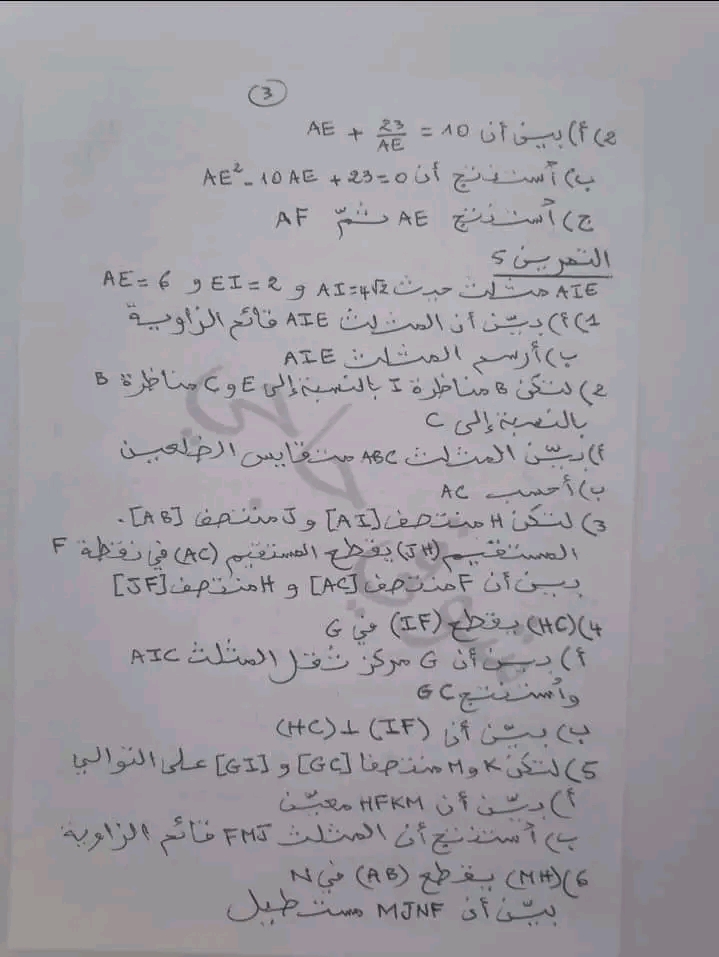 3
2) أ) بين أن AE + 23/AE = 10
ب) أستنتج أن AE² - 10AE + 23 = 0
ج) أستنتج AE ثمّ AF
التمرين 5
AIE مثلث حيث AI = 4√2 و EI = 2 و AE = 6
1) أ) بيّن أن المثلث AIE قائم الزاوية
ب) أرسم المثلث AIE
2) لتكن B مناظرة I بالنسبة إلى E و C مناظرة B
بالنسبة إلى C
أ) بيّن المثلث ABC متقايس الضلعين
ب) أحسب AC
3) لتكن H منتصف [AI] و J منتصف [AB].
المستقيم (JH) يقطع المستقيم (AC) في نقطة F
بين أن F منتصف [AC] و H منتصف [JF]
4) (HC) يقطع (IF) في G
أ) بين أن G مركز ثقل المثلث AIC
وأستنتج GC
ب) بيّن أن (IF) ⊥ (HC)
5) لتكن K و M منتصفا [GC] و [GI] على التوالي
أ) بيّن أن HFKM معيّن
ب) أستنتج أن المثلث FMJ قائم الزاوية
6) (MH) يقطع (AB) في N
بيّن أن MJNF مستطيل